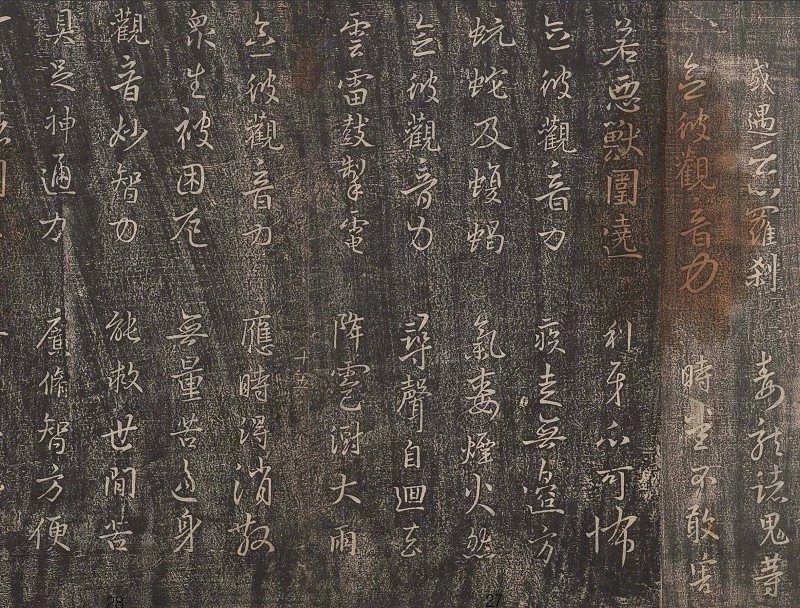 或遇惡羅刹 毒龍諸鬼等
念彼觀音力 時悉不敢害
若惡獸圍遶 利牙爪可怖
念彼觀音力 疾走無邊方
蚖蛇及蝮蝎 氣毒煙火然
念彼觀音力 尋聲自迴去
雲雷鼓掣電 降雹澍大雨
十五
念彼觀音力 應時得消散
眾生被困厄 無量苦逼身
觀音妙智力 能救世間苦
具足神通力 廣脩智方便
27
28